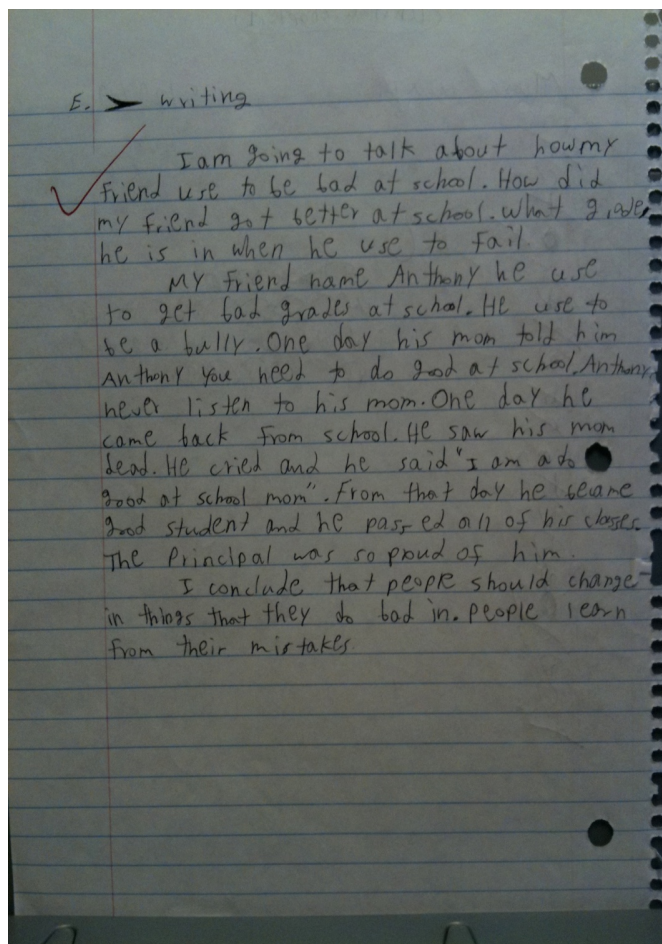 E. ➤ writing
I am going to talk about how my
friend use to be bad at school. How did
my friend got better at school. What grade,
he is in when he use to fail.
My friend name Anthony he use
to get bad grades at school. He use to
be a bully. One day his mom told him
Anthony you need to do good at school. Anthony
never listen to his mom. One day he
came back from school. He saw his mom
dead. He cried and he said "I am a do
good at school mom". From that day he became
good student and he passed all of his classes.
The Principal was so proud of him.
I conclude that people should change
in things that they do bad in. people learn
from their mistakes